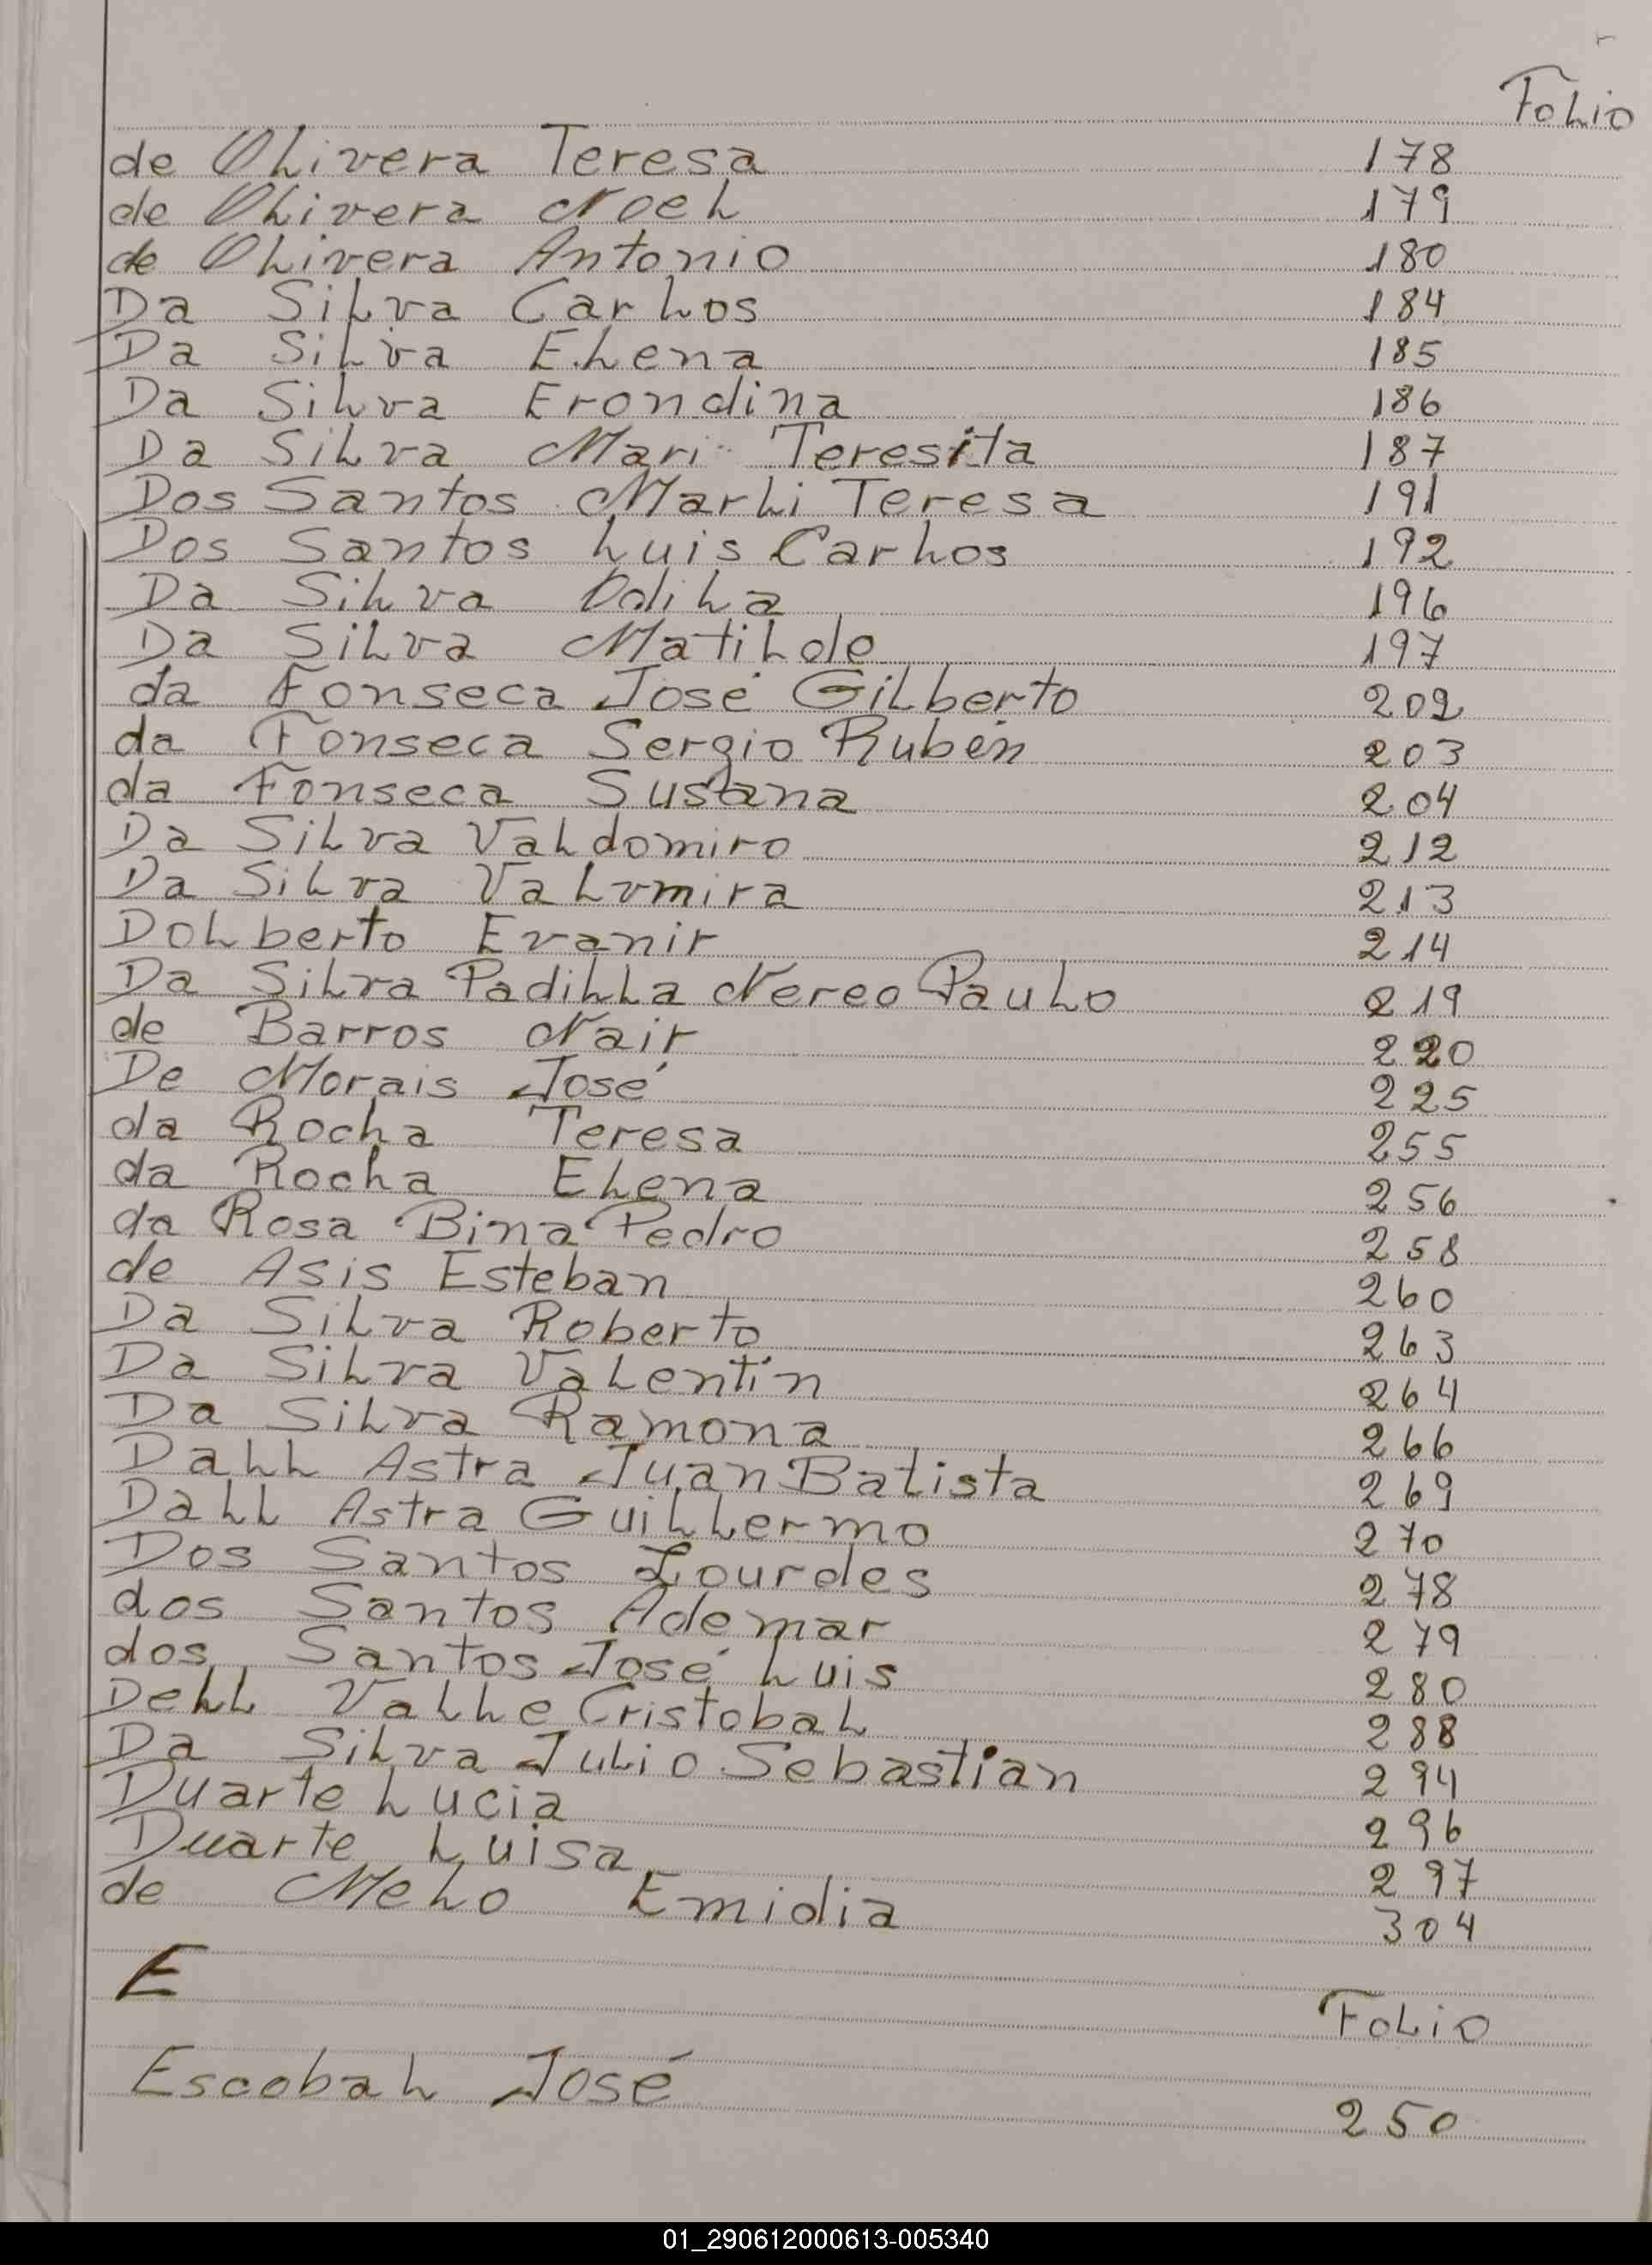 Folio
de Olivera Teresa 178
de Olivera Noel 179
de Olivera Antonio 180
Da Silva Carlos 184
Da Silva Elena 185
Da Silva Erondina 186
Da Silva Mari Teresita 187
Dos Santos Marli Teresa 191
Dos Santos Luis Carlos 192
Da Silva Odila 196
Da Silva Matilde 197
da Fonseca José Gilberto 202
da Fonseca Sergio Rubén 203
da Fonseca Susana 204
Da Silva Valdomiro 212
Da Silva Valvmira 213
Dolberto Evanir 214
Da Silva Padilla Nereo Paulo 219
de Barros Nair 220
De Morais José 225
da Rocha Teresa 255
da Rocha Elena 256
da Rosa Bina Pedro 258
de Asis Esteban 260
Da Silva Roberto 263
Da Silva Valentín 264
Da Silva Ramona 266
Dall Astra Juan Batista 269
Dall Astra Guillermo 270
Dos Santos Lourdes 278
dos Santos Ademar 279
dos Santos José Luis 280
Dell Valle Cristobal 288
Da Silva Julio Sebastian 294
Duarte Lucia 296
Duarte Luisa 297
de Melo Emidia 304
E
Folio
Escobal José 250
01_290612000613-005340